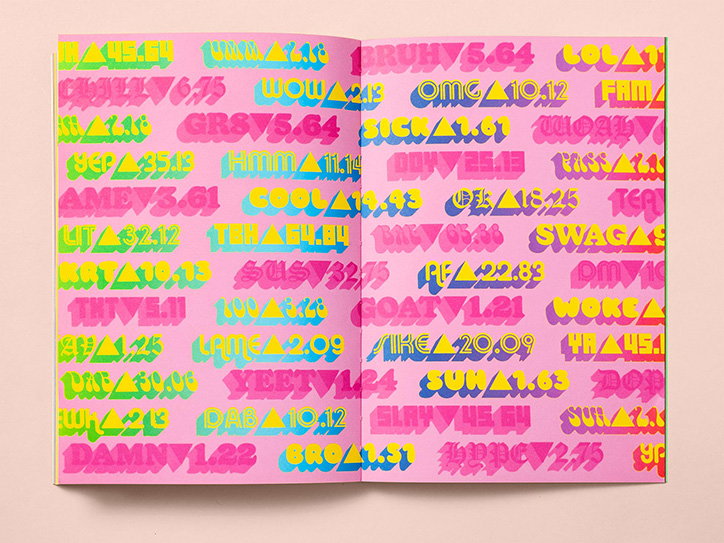 ▲45.64 UMM▲2.18 BRUH▼5.64 LOL▲
CHILL▼6.75 WOW▲2.13 OMG▲10.12 FAM▲
▲2.18 GRS▼5.64 SICK▲1.61 WOAH▼
YEP▲35.13 HMM▲11.14 BOY▼25.13 PASS▲2.1
AME▼3.61 COOL▲14.93 OK▲18.25 TEA
LIT▲32.12 TBH▲64.84 BAE▼65.68 SWAG▲9
KRT▲10.13 SUS▼32.75 AF▲22.83 DM▼10
TMI▼5.11 ▲3.28 GOAT▼1.21 WOKE▲
▲1.25 LAME▲2.09 SIKE▲20.09 YA▲45.1
▲30.06 YEET▼1.24 SUH▲1.63 DOP
▲2.13 DAB▲10.12 SLAY▼45.64 ▲2.1
DAMN▼1.22 BRO▲1.51 HYPE▼2.75 YP